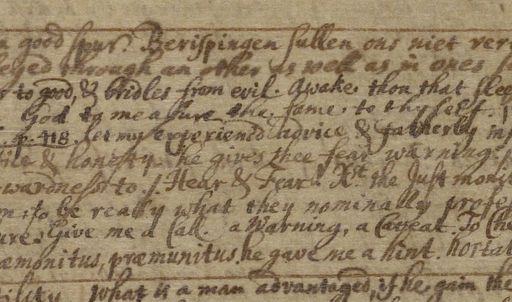 n good spur. Berispingen sullen ons niet ver
eyed through an other as well as in ones
s to good, & bridles from evil. Awake thou that slee
God to measure the same to thy self.
p. 118. let my experienc'd advice & fatherly in
tile & honesty. he gives thee fair warning.
wardness to. / Hear & Fear! Xt. the Just moni
m, to be really what they nominally profes
ure. Give me a Call. a Warning, a Caveat. To Che
æmonitus, præmunitus, he gave me a hint. hortat
ility What is a man advantaged, if he gain the